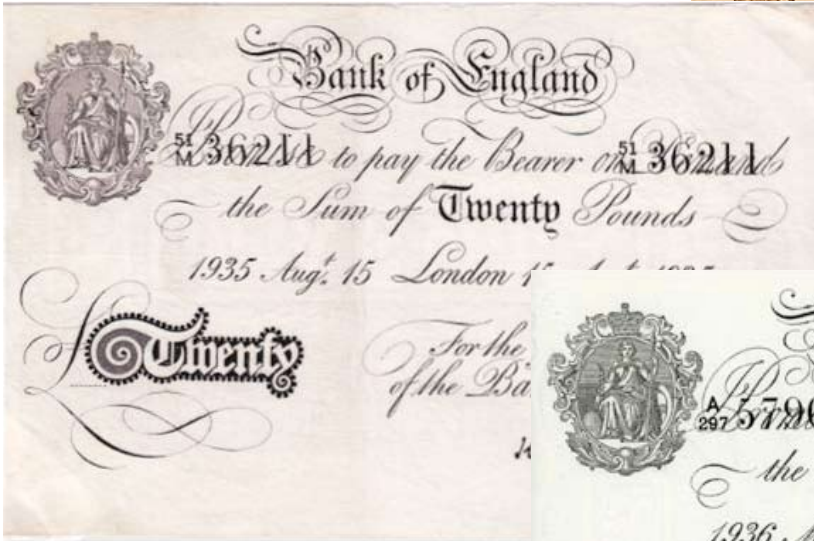 Bank of England
51
M 36211 to pay the Bearer on 51
M 36211
the Sum of Twenty Pounds
1935 Augt. 15 London
£ Twenty
For the
of the
A
297
the
1936